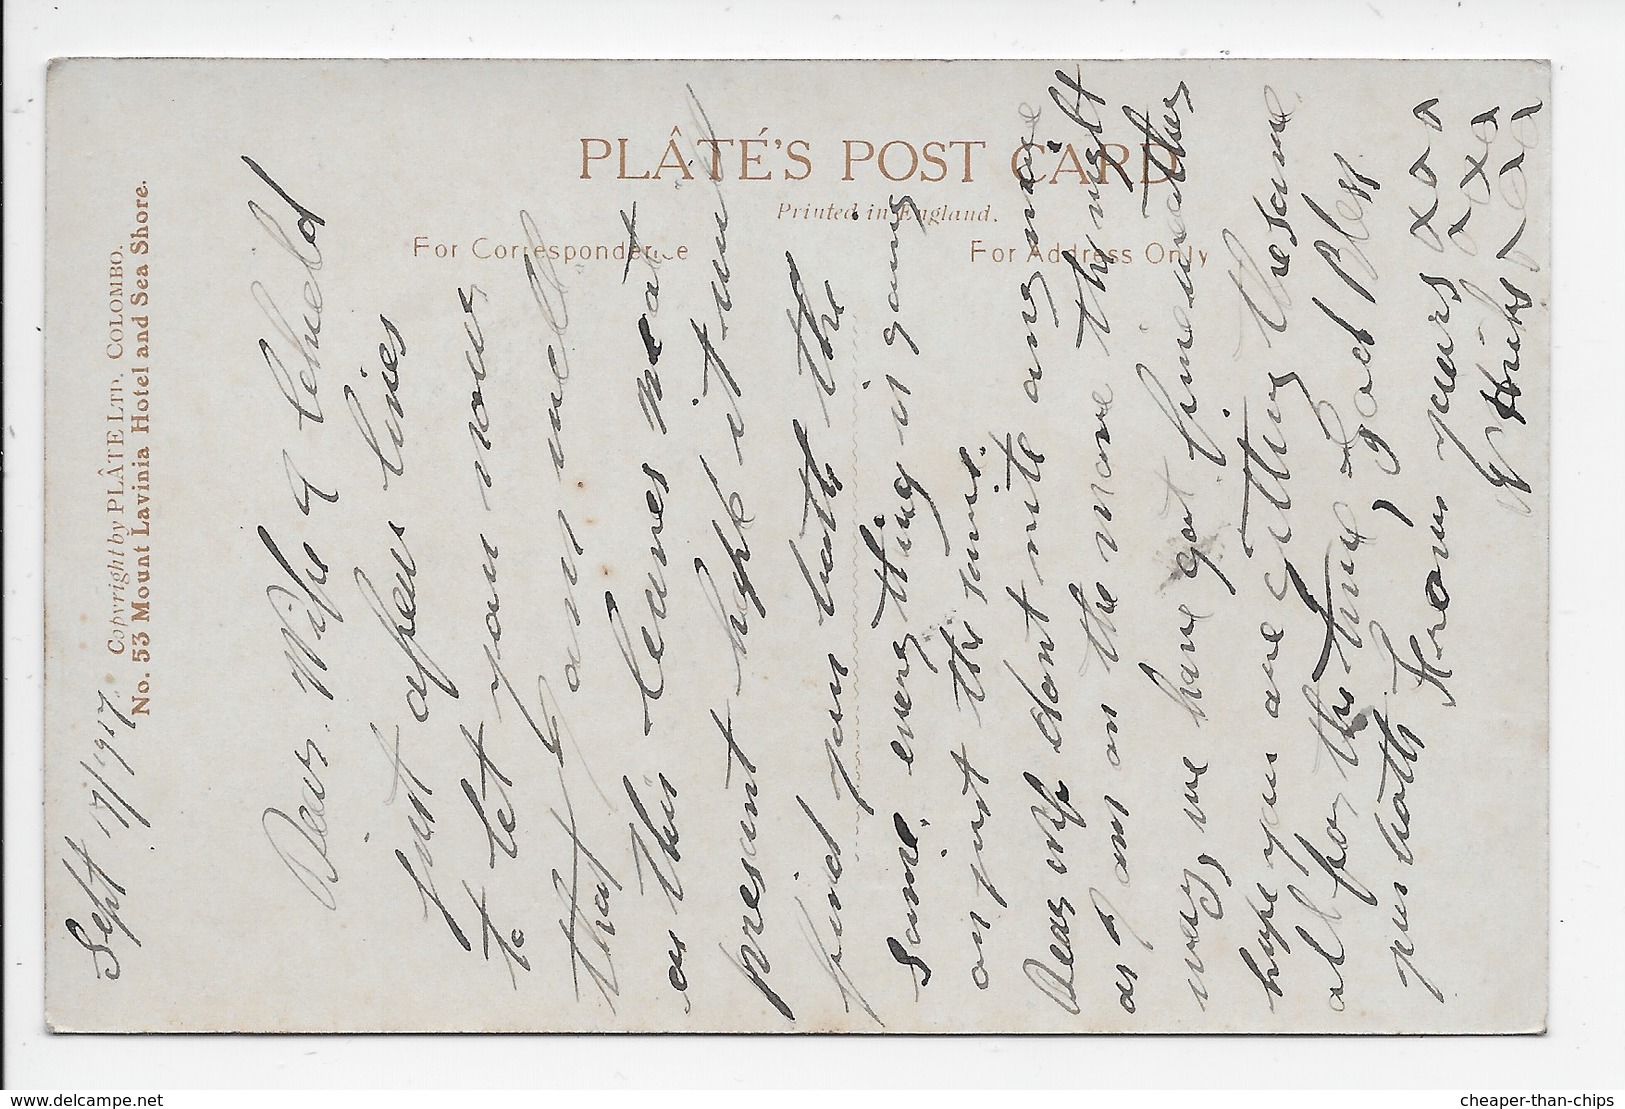 PLÂTÉ'S POST CARD
Printed in England.
For Correspondence
For Address Only
Copyright by PLÂTE LTD. COLOMBO.
No. 53 Mount Lavinia Hotel and Sea Shore.
Sept 17/1917
Dear Wife & Cehueld
just afew lines
to let you nous
that I am well
as this leaves me at
presant hope it will
find you both the
same. every thing is going
on just the same.
Dear wife dont rite any more
as I am on the move the right
way, we have got fine weather
hope you are getting the same
all for the time, God Bless
you both From yours xxx
Hicks
xxx
xxx
cheaper-than-chips
www.delcampe.net